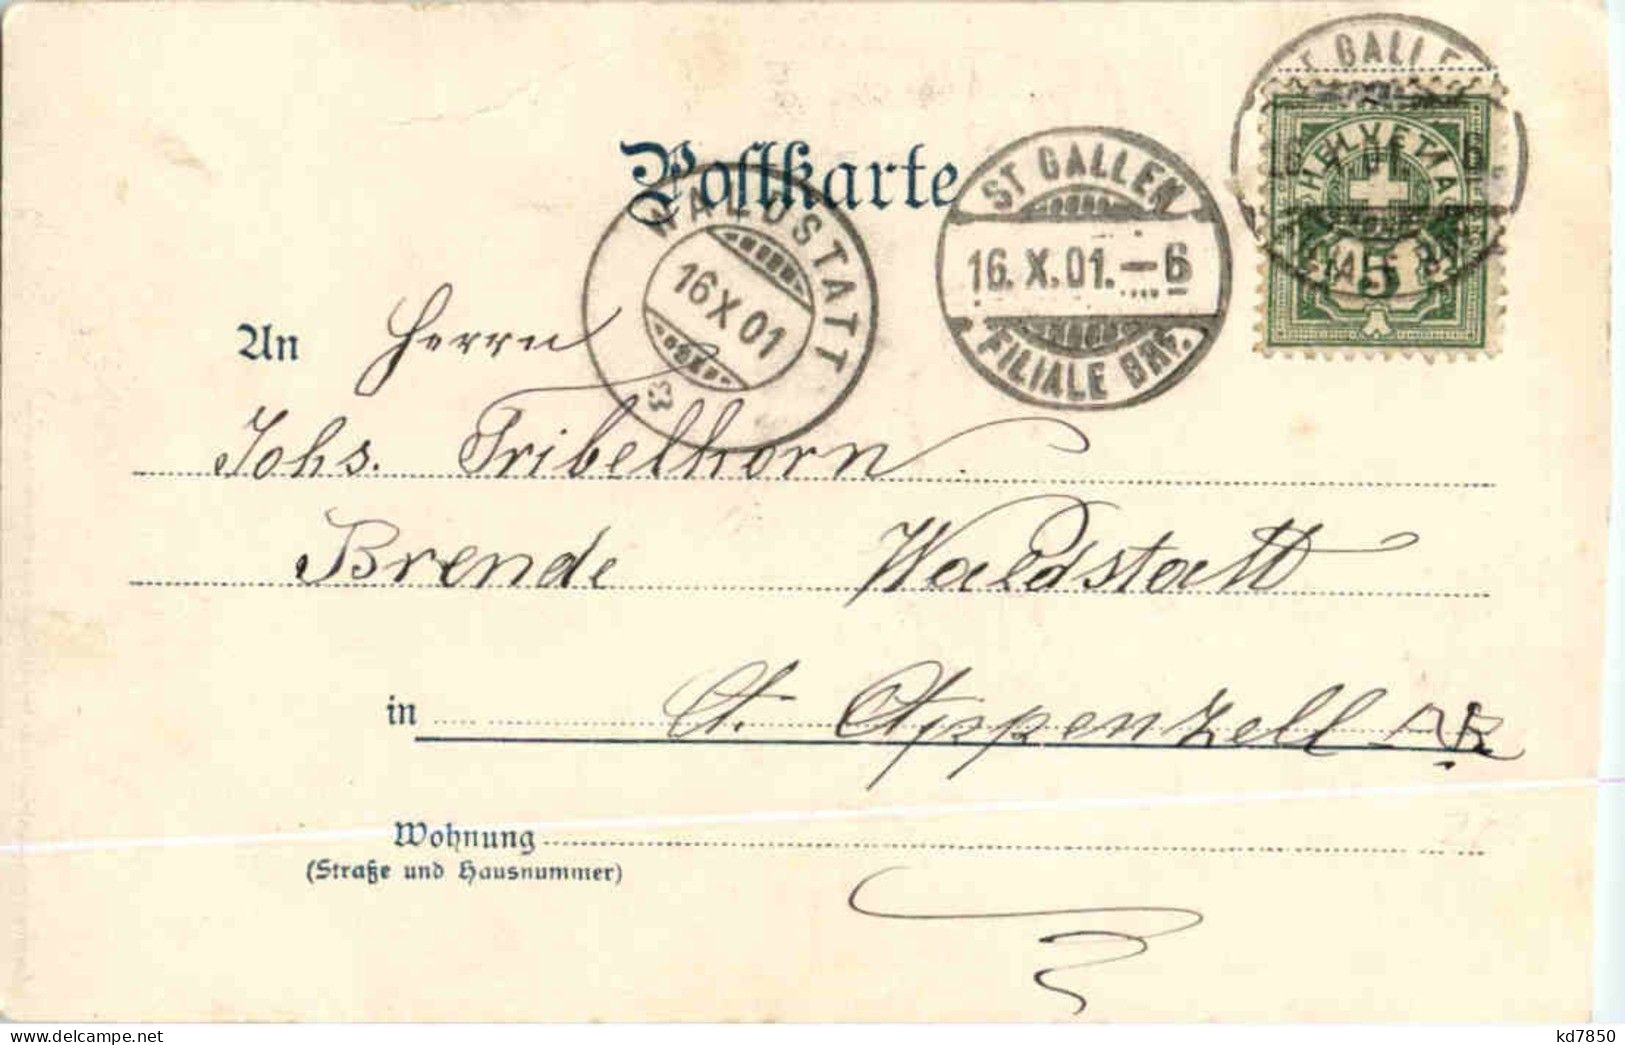 Postkarte
WALDSTATT
16 X 01
ST GALLEN
16. X. 01. – 6
FILIALE BHF.
ST GALLEN
6
HELVETIA
5
An Herrn
Johs. Tribelhorn
Brende Waldstatt
in Ct. Appenzell AR
Wohnung
(Straße und Hausnummer)
kd7850